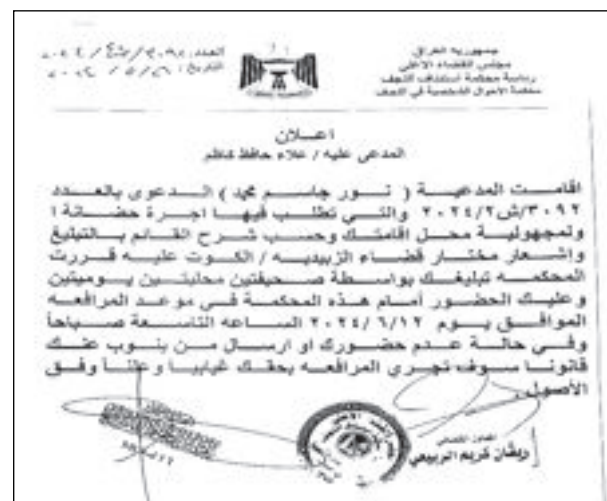 جمهورية العراق
مجلس القضاء الاعلى
رئاسة محكمة استئناف النجف
محكمة الاحوال الشخصية في النجف
العدد: ٣٠٩٢/ش٢/٢٠٢٤
التاريخ: ٢٠٢٤
اعـــلان
المدعى عليه / علاء حافظ كاظم
اقامت المدعية ( نور جاسم محمد ) الدعوى بالعدد
٣٠٩٢/ش٢/٢٠٢٤ والتي تطلب فيها اجرة حضانة ا
ولمجهولية محل اقامتك وحسب شرح القائم بالتبليغ
وإشعار مختار قضاء الزبيديه / الكوت عليه قررت
المحكمه تبليغك بواسطة صحيفتين محليتين يوميتين
وعليك الحضور أمام هذه المحكمة في موعد المرافعه
الموافق يوم ٢٠٢٤/٦/١٢ الساعه التاسعة صباحاً
وفي حالة عدم حضورك او ارسال من ينوب عنك
قانونا سوف تجري المرافعه بحقك غيابيا وعلناً وفق
الأصول .
المعاون القضائي
ريفان كريم الربيعي